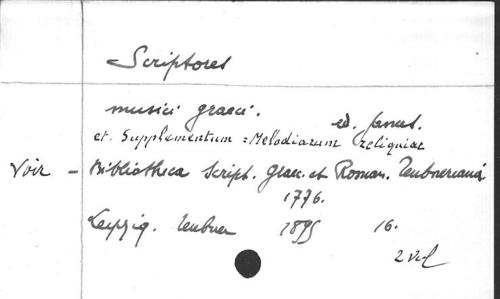 Scriptores
musici graeci. ed. Janus.
et Supplementum : Melodiarum reliquiae
Voir – Bibliotheca Script. Graec. et Roman. Teubneriana
1776.
Leipzig. Teubner 1895 16.
2 vol